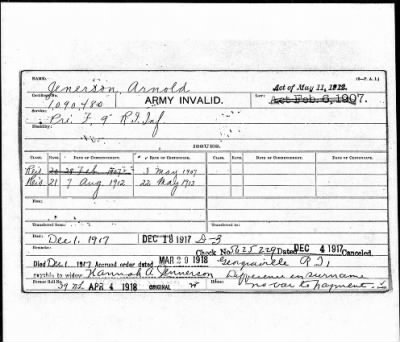 (3-P. A. I.)
NAME:
Jenerson, Arnold
Act of May 11, 1912.
Certificate No.
1,090,480
ARMY INVALID.
Law:
Act Feb. 6, 1907.
Service:
Pri. F, 9" R.I. Inf
Disability:
ISSUES.
CLASS. RATE. DATE OF COMMENCEMENT. DATE OF CERTIFICATE. CLASS. RATE. DATE OF COMMENCEMENT. DATE OF CERTIFICATE.
Reis 20 28 Feb 1907 3 May 1907
Reis 21 7 Aug 1912 22 May 1913
Fees:
Transferred from:
Died: Dec 1, 1917 DEC 18 1917 D-3
Remarks:
Check No. 5625229 Dated DEC 4 1917 Canceled
Died Dec 1, 1917 Accrued order dated MAR 29 1918 Georgiaville R.I.
payable to widow Hannah A. Jennerson Difference in surname
Former Roll No. 39 APR 4 1918 ORIGINAL no bar to payment.